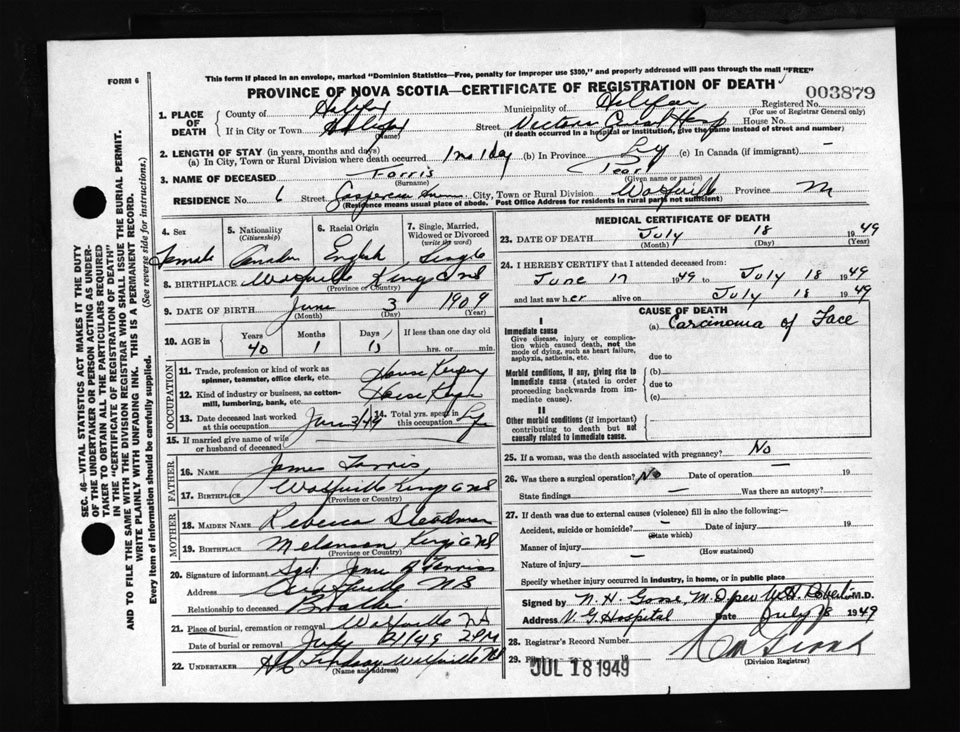 FORM 6
This form if placed in an envelope, marked "Dominion Statistics—Free, penalty for improper use $300," and properly addressed will pass through the mail "FREE"
PROVINCE OF NOVA SCOTIA—CERTIFICATE OF REGISTRATION OF DEATH
003879
1. PLACE OF DEATH
County of Halifax Municipality of Halifax Registered No.
(For use of Registrar General only)
If in City or Town Halifax Street Victoria General Hosp House No.
(Name) (If death occurred in a hospital or institution, give the name instead of street and number)
2. LENGTH OF STAY (in years, months and days)
(a) In City, Town or Rural Division where death occurred 1 mo 1 day (b) In Province Life (c) In Canada (if immigrant) —
3. NAME OF DECEASED Farris Pearl
(Surname) (Given name or names)
RESIDENCE No. 6 Street Gaspereau City, Town or Rural Division Wolfville Province
(Residence means usual place of abode. Post Office Address for residents in rural parts not sufficient)
4. Sex Female
5. Nationality (Citizenship) Canadian
6. Racial Origin English
7. Single, Married, Widowed or Divorced (write the word) Single
8. BIRTHPLACE Wolfville Kings Co NS
(Province or Country)
9. DATE OF BIRTH June 3 1909
(Month) (Day) (Year)
10. AGE in Years Months Days If less than one day old
40 1 hrs. or min.
OCCUPATION
11. Trade, profession or kind of work as spinner, teamster, office clerk, etc. House Keeping
12. Kind of industry or business, as cotton-mill, lumbering, bank, etc.
13. Date deceased last worked at this occupation June 3/49 14. Total yrs. spent in this occupation Life
15. If married give name of wife or husband of deceased
FATHER
16. NAME James Farris
17. BIRTHPLACE Wolfville Kings Co NS
(Province or Country)
MOTHER
18. MAIDEN NAME Rebecca Steadman
19. BIRTHPLACE Melanson Kings Co NS
(Province or Country)
20. Signature of informant Sgd. Farris
Address Wolfville NS
Relationship to deceased Brother
21. Place of burial, cremation or removal Wolfville NS
Date of burial or removal July 21/49 2 PM
22. UNDERTAKER Lindsay Wolfville NS
(Name and address)
MEDICAL CERTIFICATE OF DEATH
23. DATE OF DEATH July 18 1949
(Month) (Day) (Year)
24. I HEREBY CERTIFY that I attended deceased from:
June 17 1949 to July 18 1949
and last saw her alive on July 18 1949
CAUSE OF DEATH
I
Immediate cause
Give disease, injury or complication which caused death, not the mode of dying, such as heart failure, asphyxia, asthenia, etc.
(a) Carcinoma of Face
due to
Morbid conditions, if any, giving rise to immediate cause (stated in order proceeding backwards from immediate cause).
(b)
due to
(c)
II
Other morbid conditions (if important) contributing to death but not causally related to immediate cause.
25. If a woman, was the death associated with pregnancy? No
26. Was there a surgical operation? No Date of operation — 19
State findings — Was there an autopsy?
27. If death was due to external causes (violence) fill in also the following:—
Accident, suicide or homicide? — Date of injury 19
(State which)
Manner of injury —
(How sustained)
Nature of injury —
Specify whether injury occurred in industry, in home, or in public place
Signed by M.D.
Address V. G. Hospital Date July 18 1949
28. Registrar's Record Number
29. 19
JUL 18 1949
(Division Registrar)
SEC. 46—VITAL STATISTICS ACT MAKES IT THE DUTY
OF THE UNDERTAKER OR PERSON ACTING AS UNDER-
TAKER TO OBTAIN ALL THE PARTICULARS REQUIRED
IN THE "CERTIFICATE OF REGISTRATION OF DEATH"
AND TO FILE THE SAME WITH THE DIVISION REGISTRAR WHO SHALL ISSUE THE BURIAL PERMIT.
WRITE PLAINLY WITH UNFADING INK. THIS IS A PERMANENT RECORD.
Every item of information should be carefully supplied. (See reverse side for instructions.)